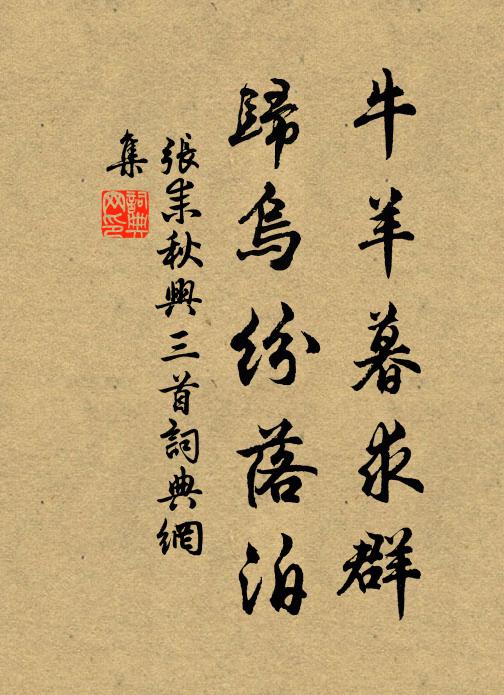 牛羊暮求群
歸烏紛落泊
張耒秋興三首詞典網
集
詞典
网印